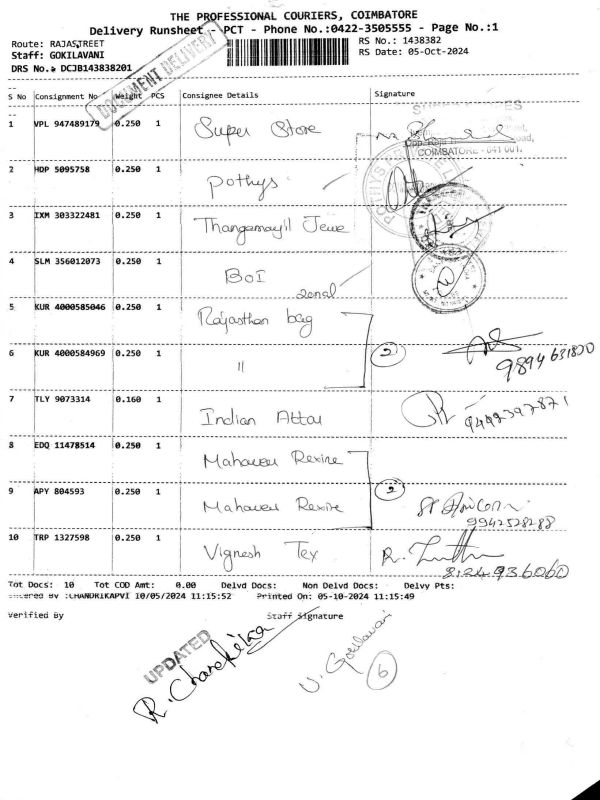 THE PROFESSIONAL COURIERS, COIMBATORE
Delivery Runsheet - PCT - Phone No.:0422-3505555 - Page No.:1
Route: RAJASTREET
RS No.: 1438382
Staff: GOKILAVANI
RS Date: 05-Oct-2024
DRS No.: DCJB143838201
DOCUMENT DELIVERY
S No Consignment No Weight PCS Consignee Details Signature
1 VPL 947489179 0.250 1 Super Store
COIMBATORE - 641 001.
2 HDP 5095758 0.250 1 Pothys
3 IXM 303322481 0.250 1 Thangamayil Jewe
4 SLM 356012073 0.250 1 BOI zonal
5 KUR 4000585046 0.250 1 Rajasthan bag
6 KUR 4000584969 0.250 1 " 2 9894631820
7 TLY 9073314 0.160 1 Indian Attar 9442397871
8 EDQ 11478514 0.250 1 Mahaveer Rexine
9 APY 804593 0.250 1 Mahaveer Rexine 2 9942528288
10 TRP 1327598 0.250 1 Vignesh Tex 8124936060
Tot Docs: 10 Tot COD Amt: 0.00 Delvd Docs: Non Delvd Docs: Delvy Pts:
Entered By :CHANDRIKAPVI 10/05/2024 11:15:52 Printed On: 05-10-2024 11:15:49
Verified By Staff Signature
UPDATED
R. Chandrika
V. Gokilavani
6